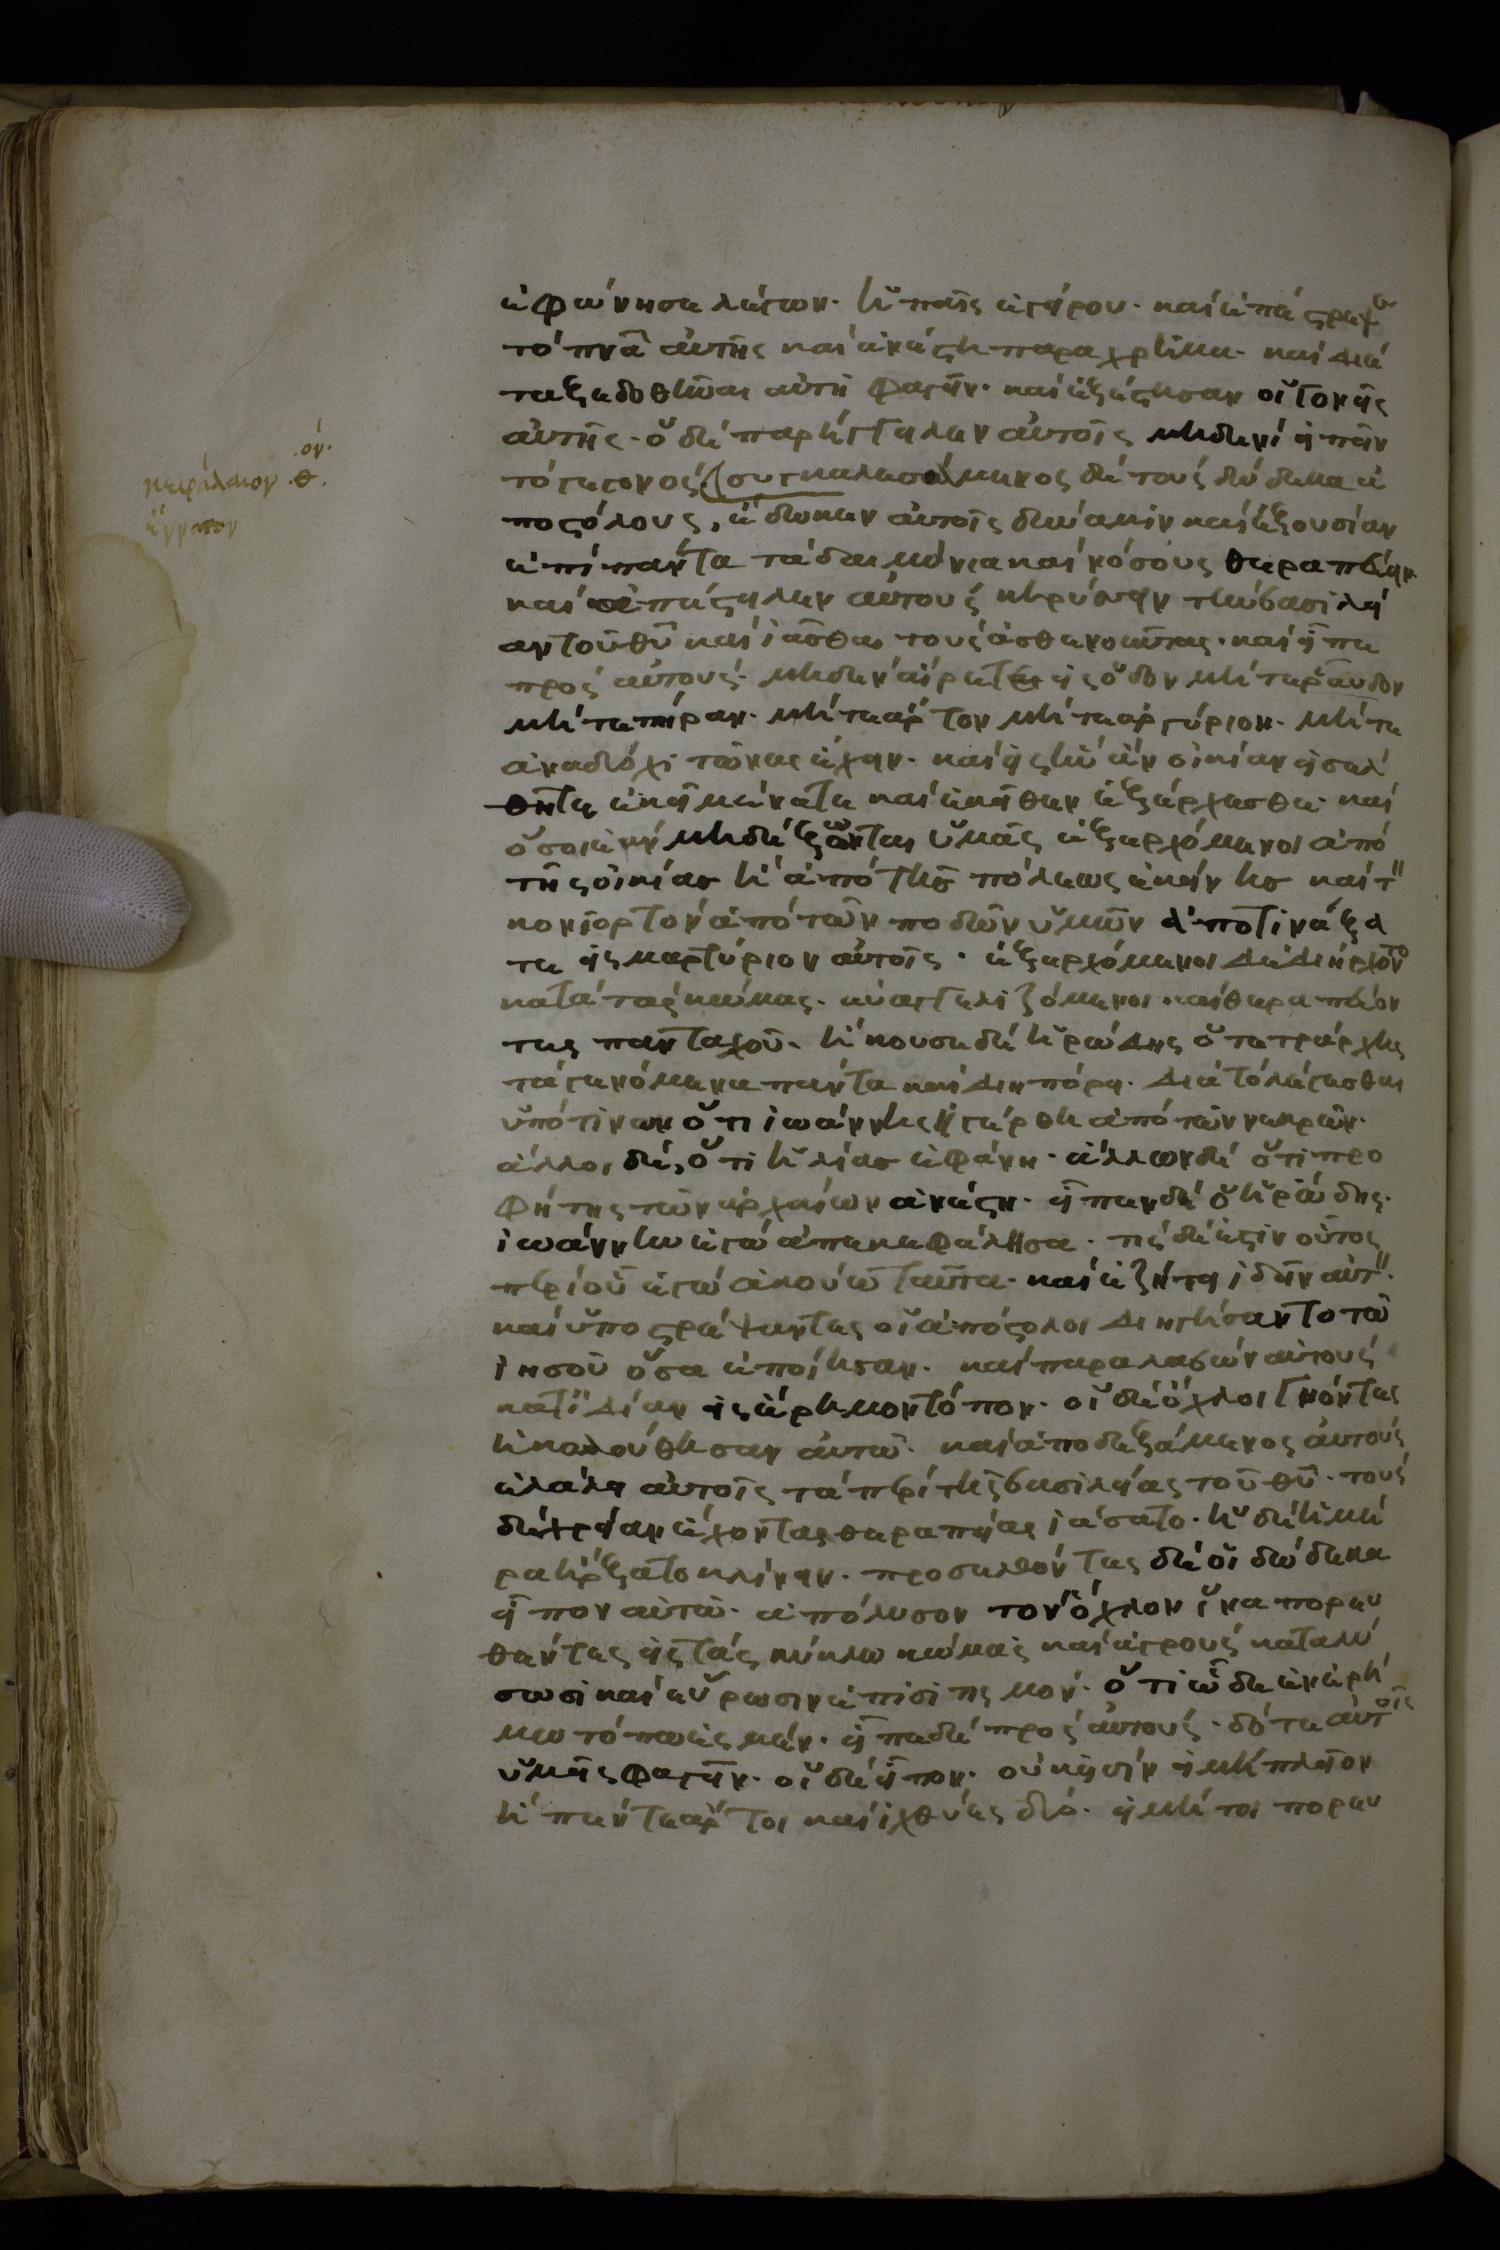 ἐφώνησε λέγων· ἡ παῖς ἐγείρου· καὶ ἐπέστρεψε
τὸ πνᾶ αὐτῆς καὶ ἀνέστη παραχρῆμα· καὶ διέ
ταξε δοθῆναι αὐτῆ φαγεῖν· καὶ ἐξέστησαν οἱ γονεῖς
αὐτῆς· ὁ δὲ παρήγγειλεν αὐτοῖς μηδενὶ εἰπεῖν
τὸ γεγονός· συγκαλεσάμενος δὲ τοὺς δώδεκα ἀ
ποστόλους, ἔδωκεν αὐτοῖς δύναμιν καὶ ἐξουσίαν
ἐπὶ πάντα τὰ δαιμόνια καὶ νόσους θεραπεύειν
καὶ ἀπέστειλεν αὐτοὺς κηρύσσειν τὴν βασιλεί
αν τοῦ θῦ καὶ ἰᾶσθαι τοὺς ἀσθενοῦντας· καὶ εἶπε
πρὸς αὐτούς· μηδὲν αἴρετε εἰς ὁδὸν μήτε ράβδον
μήτε πήραν· μήτε ἄρτον μήτε ἀργύριον· μήτε
ἀνὰ δύο χιτῶνας ἔχειν· καὶ εἰς ἣν ἂν οἰκίαν εἰσέλ
θητε ἐκεῖ μένετε καὶ ἐκεῖθεν ἐξέρχεσθε· καὶ
ὅσοι ἐὰν μὴ δέξωνται ὑμᾶς ἐξερχόμενοι ἀπὸ
τῆς οἰκίας ἢ ἀπὸ τῆς πόλεως ἐκείνης καὶ τὸν
κονιορτὸν ἀπὸ τῶν ποδῶν ὑμῶν ἀποτινάξα
τε εἰς μαρτύριον αὐτοῖς· ἐξερχόμενοι δὲ διήρχοντο
κατὰ τὰς κώμας· εὐαγγελιζόμενοι καὶ θεραπεύον
τες πανταχοῦ· ἤκουσε δὲ ἡρώδης ὁ τετράρχης
τὰ γενόμενα πάντα καὶ διηπόρει· διὰ τὸ λέγεσθαι
ὑπό τινων ὅτι ἰωάννης ἠγέρθη ἀπὸ τῶν νεκρῶν·
ἄλλοι δὲ, ὅτι ἡλίας ἐφάνη· ἄλλων δὲ ὅτι προ
φήτης τῶν ἀρχαίων ἀνέστη· εἶπεν δὲ ὁ ἡρώδης·
ἰωάννην ἐγὼ ἀπεκεφάλησα· τίς δέ ἐστιν οὗτος
περὶ οὗ ἐγὼ ἀκούω ταῦτα· καὶ ἐζήτει ἰδεῖν αὐτόν·
καὶ ὑποστρέψαντες οἱ ἀπόστολοι διηγήσαντο τῶ
ἰησοῦ ὅσα ἐποίησαν· καὶ παραλαβὼν αὐτοὺς
κατϊδίαν εἰς ἔρημον τόπον· οἱ δὲ ὄχλοι γνόντες
ἠκολούθησαν αὐτῶ· καὶ ἀποδεξάμενος αὐτοὺς
ἐλάλει αὐτοῖς τὰ περὶ τῆς βασιλείας τοῦ θῦ· τοὺς
δὲ χρείαν ἔχοντας θεραπείας ἰάσατο· ἡ δὲ ἡμέ
ρα ἤρξατο κλίνειν· προσελθόντες δὲ οἱ δώδεκα
εἶπον αὐτῶ· ἀπόλυσον τὸν ὄχλον ἵνα πορευ
θέντες εἰς τὰς κύκλω κώμας καὶ ἀγροὺς καταλύ
σωσι καὶ εὕρωσιν ἐπισιτισμόν· ὅτι ὧδε ἐν ἐρή
μω τόπω ἐσμέν· εἶπε δὲ πρὸς αὐτούς· δότε αὐτοῖς
ὑμεῖς φαγεῖν· οἱ δὲ εἶπον· οὐκ εἰσὶν ἡμῖν πλεῖον
ἢ πέντε ἄρτοι καὶ ἰχθύες δύο· εἰ μή τοι πορευ
κεφάλαιον θ ον
ἔννατον